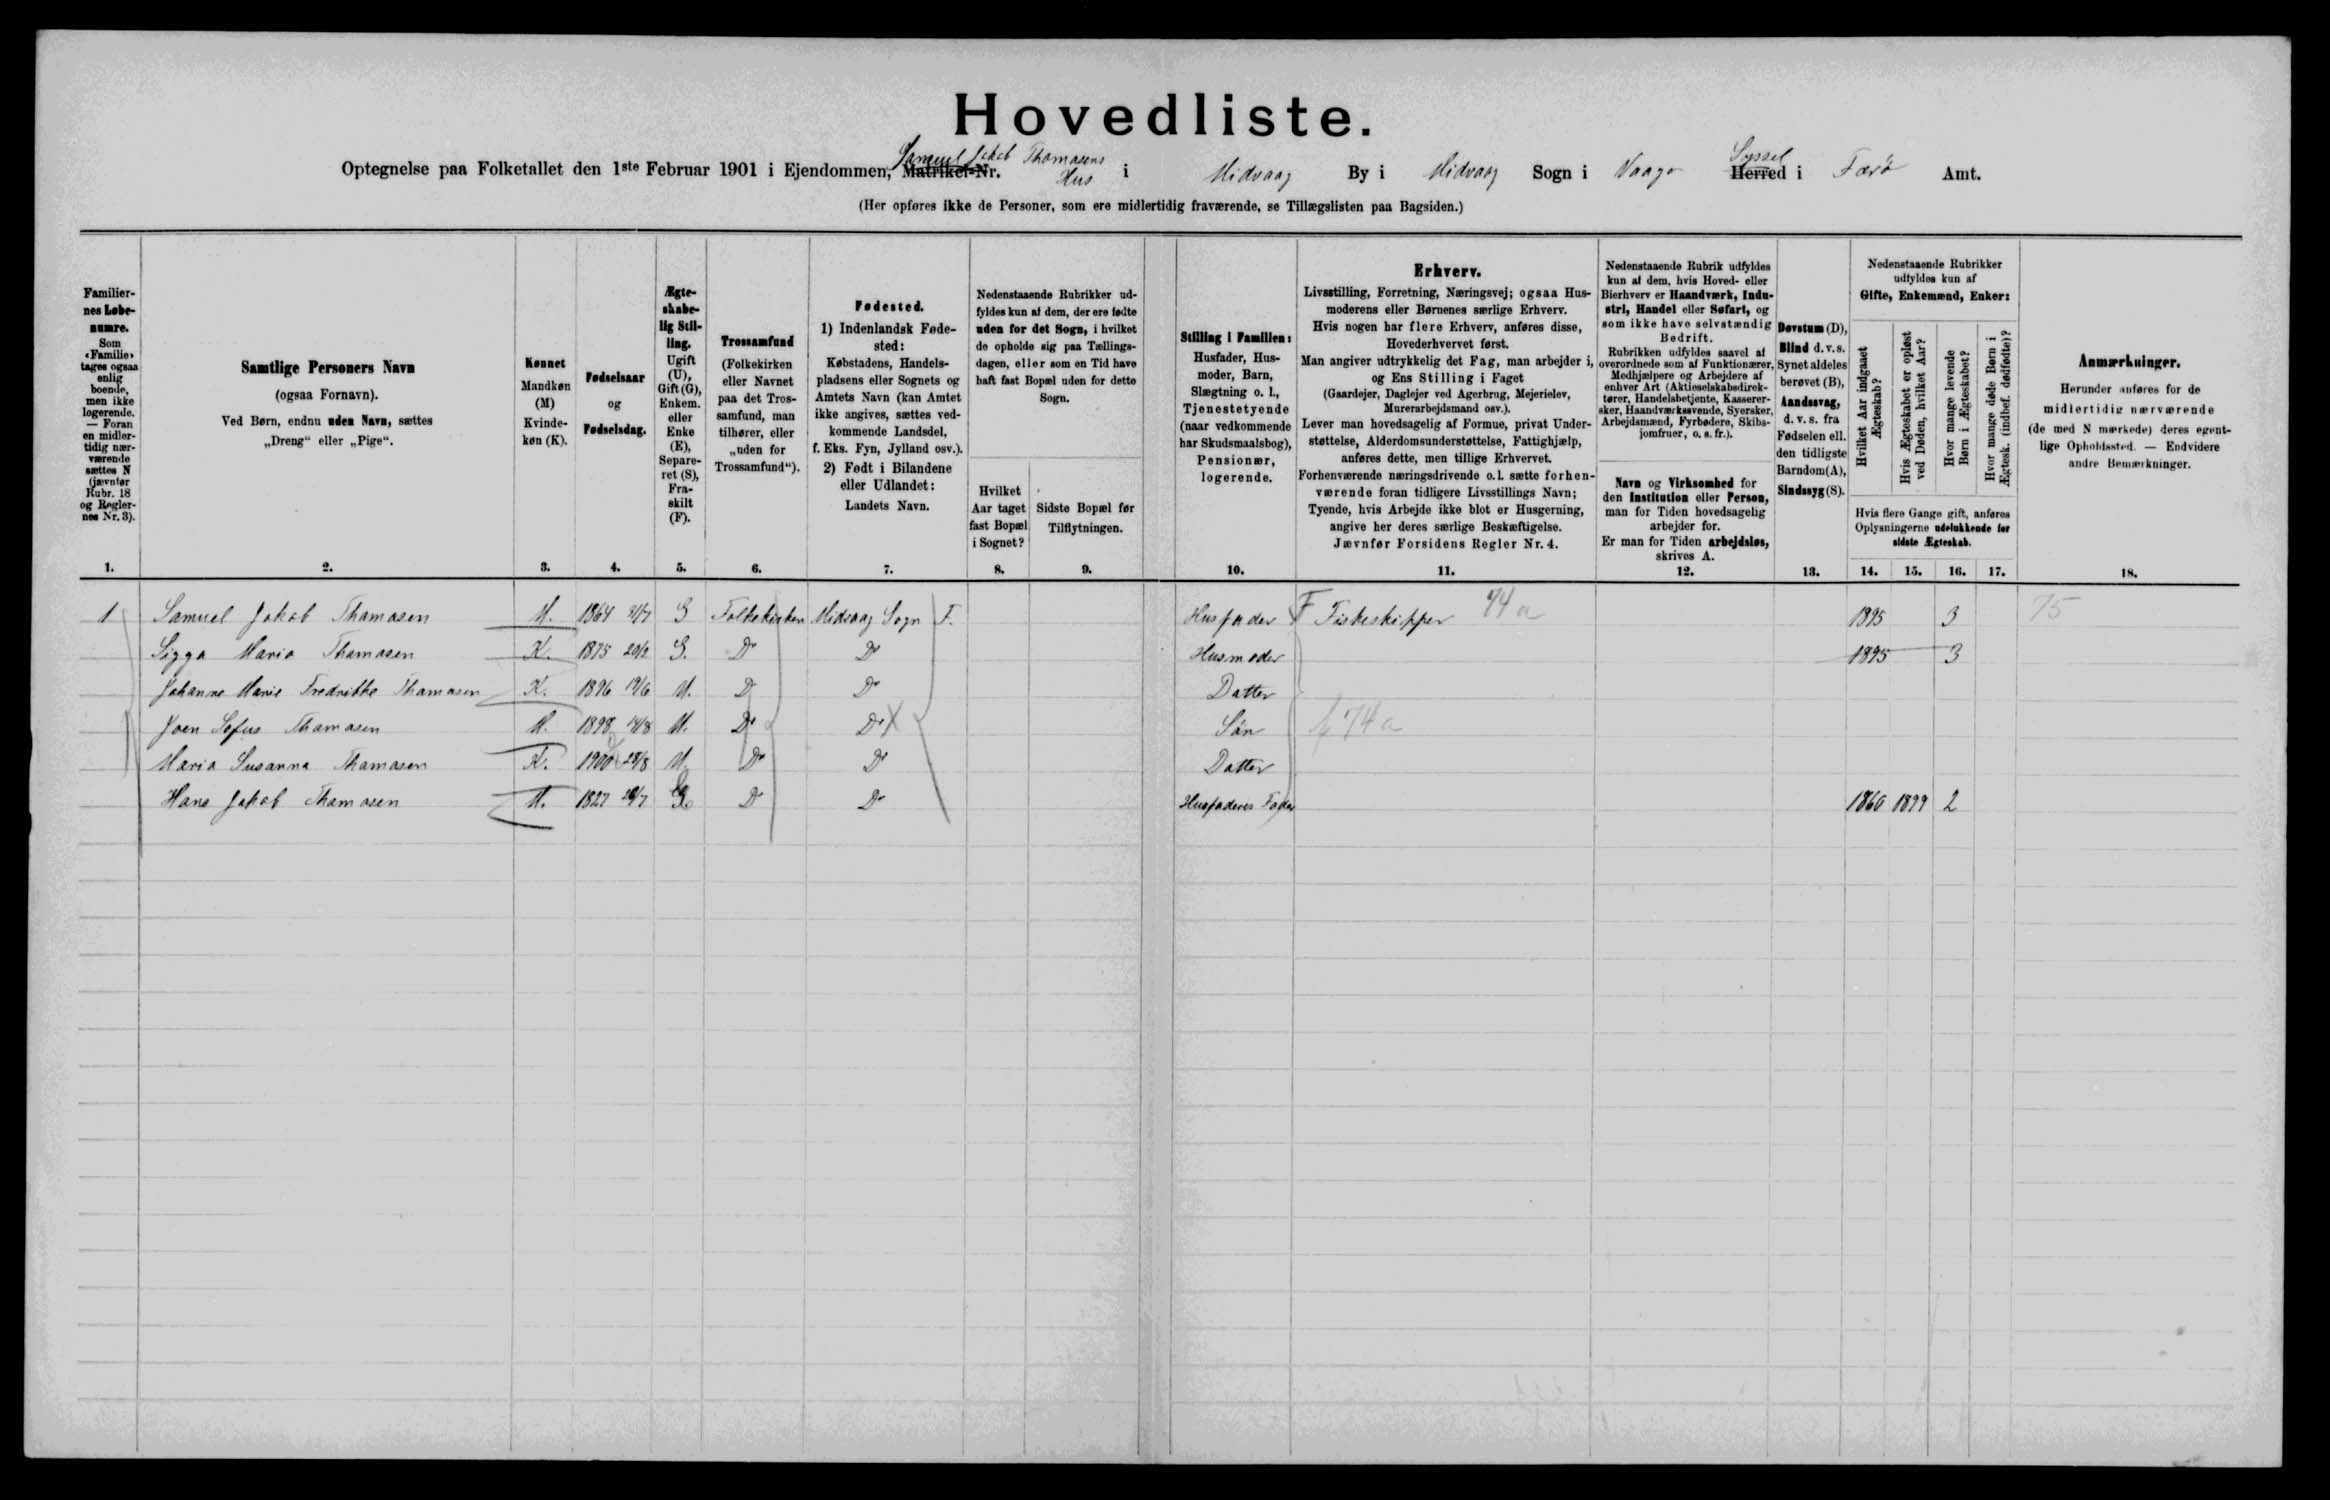 Hovedliste.
Optegnelse paa Folketallet den 1ste Februar 1901 i Ejendommen, Matrikel-Nr. Samuel Jakob Thomasens Hus i Midvaag By i Midvaag Sogn i Vaagø Herred Syssel i Færø Amt.
(Her opføres ikke de Personer, som ere midlertidig fraværende, se Tillægslisten paa Bagsiden.)
Familiernes Løbenumre. Som «Familie» tages ogsaa enlig boende, men ikke logerende. — Foran en midlertidig nærværende sættes N (jævnfør Rubr. 18 og Reglernes Nr. 3).
Samtlige Personers Navn (ogsaa Fornavn). Ved Børn, endnu uden Navn, sættes „Dreng“ eller „Pige“.
Kønnet Mandkøn (M) Kvindekøn (K).
Fødselsaar og Fødselsdag.
Ægteskabelig Stilling. Ugift (U), Gift (G), Enkem. eller Enke (E), Separeret (S), Fraskilt (F).
Trossamfund (Folkekirken eller Navnet paa det Trossamfund, man tilhører, eller „uden for Trossamfund“).
Fødested. 1) Indenlandsk Fødested: Købstadens, Handelspladsens eller Sognets og Amtets Navn (kan Amtet ikke angives, sættes vedkommende Landsdel, f. Eks. Fyn, Jylland osv.). 2) Født i Bilandene eller Udlandet: Landets Navn.
Nedenstaaende Rubrikker udfyldes kun af dem, der ere fødte uden for det Sogn, i hvilket de opholde sig paa Tællingsdagen, eller som en Tid have haft fast Bopæl uden for dette Sogn.
Hvilket Aar taget fast Bopæl i Sognet?
Sidste Bopæl før Tilflytningen.
Stilling i Familien: Husfader, Husmoder, Barn, Slægtning o. l., Tjenestetyende (naar vedkommende har Skudsmaalsbog), Pensionær, logerende.
Erhverv.
Livsstilling, Forretning, Næringsvej; ogsaa Husmoderens eller Børnenes særlige Erhverv.
Hvis nogen har flere Erhverv, anføres disse, Hovederhvervet først.
Man angiver udtrykkelig det Fag, man arbejder i, og Ens Stilling i Faget
(Gaardejer, Daglejer ved Agerbrug, Mejerielev, Murerarbejdsmand osv.).
Lever man hovedsagelig af Formue, privat Understøttelse, Alderdomsunderstøttelse, Fattighjælp, anføres dette, men tillige Erhvervet.
Forhenværende næringsdrivende o. l. sætte forhenværende foran tidligere Livsstillings Navn; Tyende, hvis Arbejde ikke blot er Husgerning, angive her deres særlige Beskæftigelse.
Jævnfør Forsidens Regler Nr. 4.
Nedenstaaende Rubrik udfyldes kun af dem, hvis Hoved- eller Bierhverv er Haandværk, Industri, Handel eller Søfart, og som ikke have selvstændig Bedrift.
Rubrikken udfyldes saavel af overordnede som af Funktionærer, Medhjælpere og Arbejdere af enhver Art (Aktieselskabsdirektører, Handelsbetjente, Kasserersker, Haandværkssvende, Syersker, Arbejdsmænd, Fyrbødere, Skibsjomfruer, o. s. fr.).
Navn og Virksomhed for den Institution eller Person, man for Tiden hovedsagelig arbejder for.
Er man for Tiden arbejdsløs, skrives A.
Døvstum (D), Blind d. v. s. Synet aldeles berøvet (B), Aandssvag, d. v. s. fra Fødselen ell. den tidligste Barndom (A), Sindssyg (S).
Nedenstaaende Rubrikker udfyldes kun af Gifte, Enkemænd, Enker:
Hvilket Aar indgaaet Ægteskab?
Hvis Ægteskabet er opløst ved Døden, hvilket Aar?
Hvor mange levende Børn i Ægteskabet?
Hvor mange døde Børn i Ægtesk. (indbef. dødfødte)?
Hvis flere Gange gift, anføres Oplysningerne udelukkende for sidste Ægteskab.
Anmærkninger.
Herunder anføres for de midlertidig nærværende (de med N mærkede) deres egentlige Opholdssted. — Endvidere andre Bemærkninger.
1. 2. 3. 4. 5. 6. 7. 8. 9. 10. 11. 12. 13. 14. 15. 16. 17. 18.
1 Samuel Jakob Thomasen M. 1864 21/7 G Folkekirken Midvaag Sogn F. Husfader F Fiskeskipper 74 a 1895 3 75
Sigga Maria Thomasen K. 1875 20/2 G. Do Do Husmoder 1895 3
Johanne Marie Fredrikke Thomasen K. 1896 19/6 U. Do Do Datter
Joen Sofus Thomasen M. 1898 14/8 U. Do Do Søn f 74 a
Maria Susanna Thomasen K. 1900 28/8 U. Do Do Datter
Hans Jakob Thomasen M. 1827 29/7 Do Do Husfaderes Fader 1860 1899 2